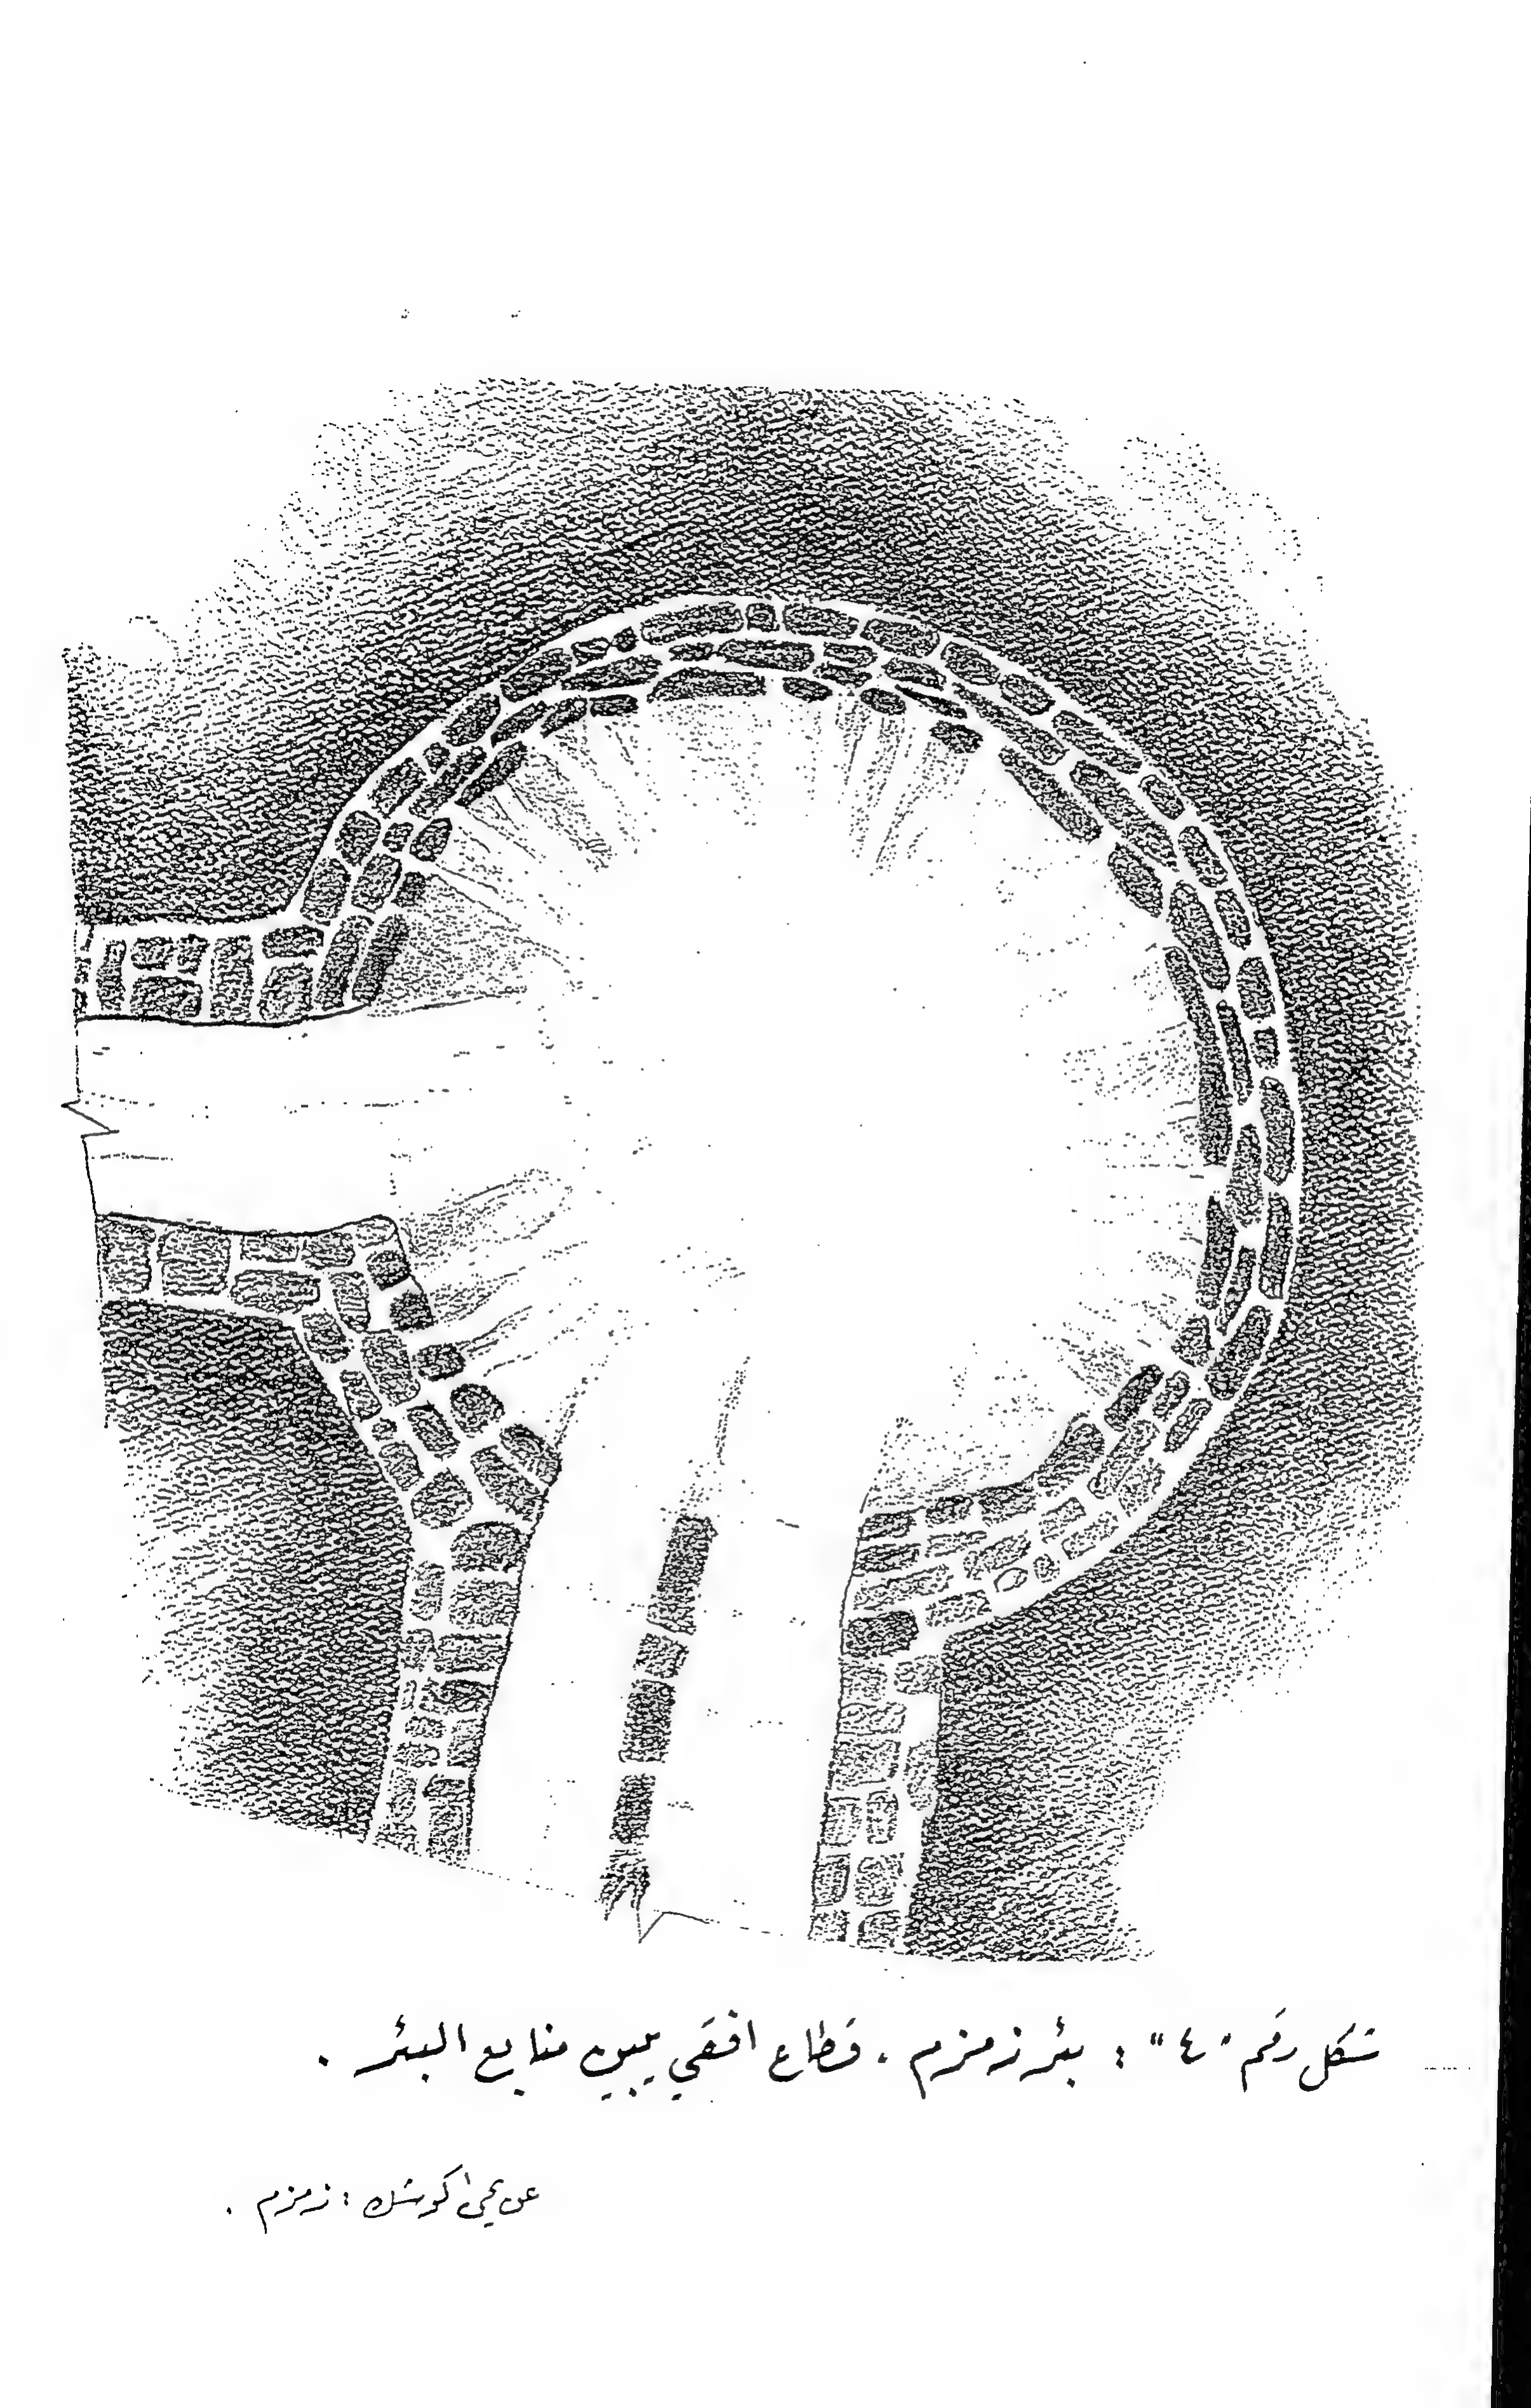 شكل رقم "٤" : بئر زمزم ، قطاع افقي يبين منابع البئر .
عن يحيى كوشك : زمزم .